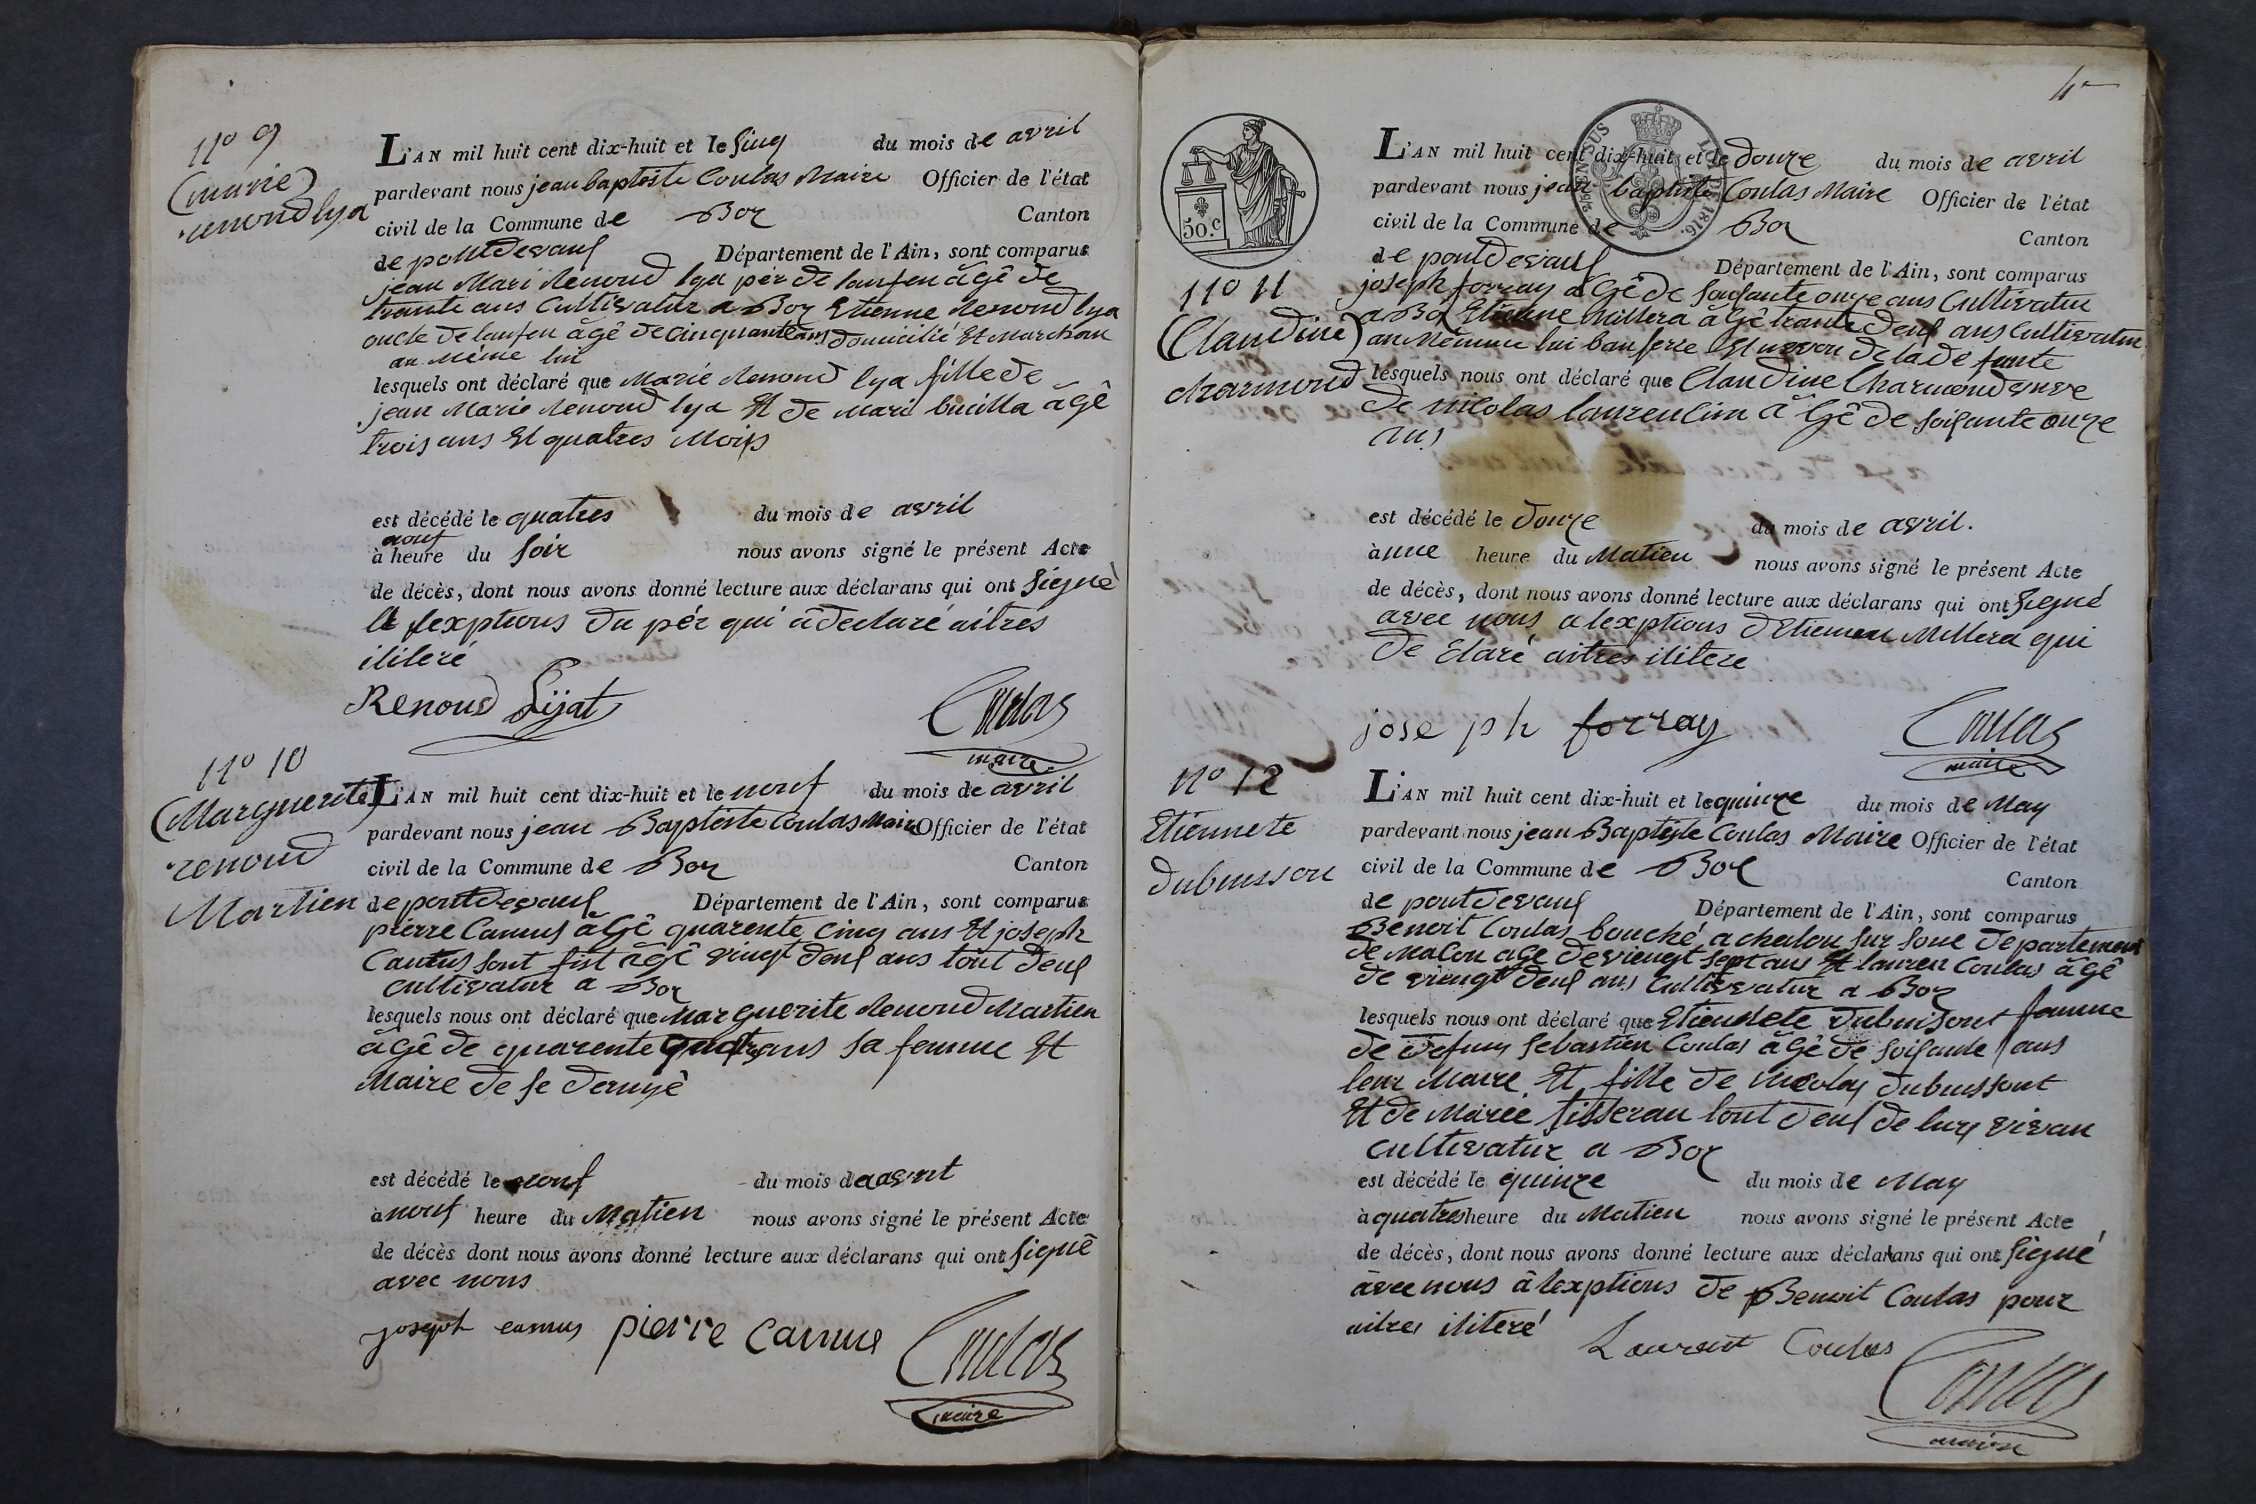 N° 9
(marie)
renond lya
L'AN mil huit cent dix-huit et le sinq du mois de avril
pardevant nous jean baptiste Coulas Maire Officier de l'état
civil de la Commune de Boz Canton
de pontdevaux Département de l'Ain, sont comparus
jean Mari Renoud lya pér de lanfen âgê de
trante ans Cultivatur a Boz Etienne Renoud lya
oncle de lanfen âgê de cinquante ans domicilié Et Marchan
au Même lui
lesquels ont déclaré que Marie Renoud lya fille de
jean Marie Renoud lya Et de Mari bucilla âgê
trois ans Et quatres Mois
est décédé le quatres du mois de avril
à neuf heure du soir nous avons signé le présent Acte
de décès, dont nous avons donné lecture aux déclarans qui ont signé
a lexptions du pér qui â declaré aitres
ilitéré
Renoud Lijat
Coulas
maire
N° 10
(Marguerite)
renoud
Martien
L'AN mil huit cent dix-huit et le neuf du mois de avril
pardevant nous jean Baptiste Coulas Maire Officier de l'état
civil de la Commune de Boz Canton
de pontdevaux Département de l'Ain, sont comparus
pierre Camus âGê quarente cinq ans Et joseph
Camus sont fist âgê vingt deux ans tout deux
cultivatur a Boz
lesquels nous ont déclaré que Marguerite Renoud Martien
âGê de quarente quatre ans sa femme Et
Maire de se dernyê
est décédé le neuf du mois de avril
à neuf heure du Matien nous avons signé le présent Acte
de décès dont nous avons donné lecture aux déclarans qui ont signé
avec nous
joseph camus pierre camus
Coulas
maire
4
50.c
25 EN SUS
LOI DE 1816.
N° 11
(Claudine)
charmond
L'AN mil huit cent dix-huit et le douze du mois de avril
pardevant nous jean baptiste Coulas Maire Officier de l'état
civil de la Commune de Boz Canton
de pontdevaux Département de l'Ain, sont comparus
joseph forray âGê de soixante onze ans Cultivatur
a Boz Etienne Millera âGê trante deux ans Cultivatur
au Mêmme lui Et nevou de la defunte
lesquels nous ont déclaré que Claudine Charmond veve
de nicolas laurencim âGê de soixante onze
ans
est décédé le douze du mois de avril.
à une heure du Matien nous avons signé le présent Acte
de décès, dont nous avons donné lecture aux déclarans qui ont signé
avec nous a lexptions dEtienne Millera qui
de claré aitres ilitere
joseph forray
Coulas
maire
N° 12
Etiennete
dubuisson
L'AN mil huit cent dix-huit et le quinze du mois de May
pardevant nous jean Baptiste Coulas Maire Officier de l'état
civil de la Commune de Boz Canton
de pontdevaux Département de l'Ain, sont comparus
Benoit Coulas bouché a chalon sur sone departement
de Macon age de viengt sept ans Et lauren Coulas âgê
de viengt deux ans Cultivatur a Boz
lesquels nous ont déclaré que Etiennete dubuisont famme
de defunt Sebastien Coulas âGê de soixante ans
leur Maire Et fille de Nicolas dubuissont
Et de Mariee tisseran tout deux de lurs vivan
cultivatur a Boz
est décédé le quinze du mois de May
à quatres heure du Matien nous avons signé le présent Acte
de décès, dont nous avons donné lecture aux déclarans qui ont signé
avec nous â lexptions de Benoit Coulas pour
aitres ilitéré
Laurent Coulas
Coulas
maire